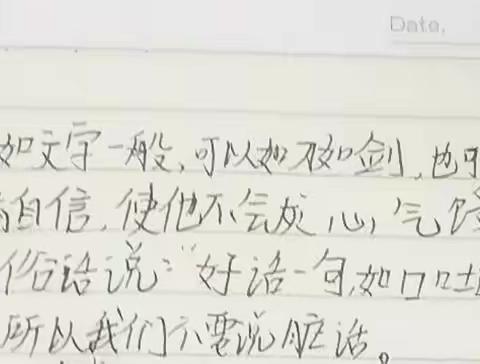 Date.
如文字一般,可以如刀如剑,也可
自信,使他不会灰心,气馁
俗话说:“好话一句,如口吐
所以我们不要说脏话。